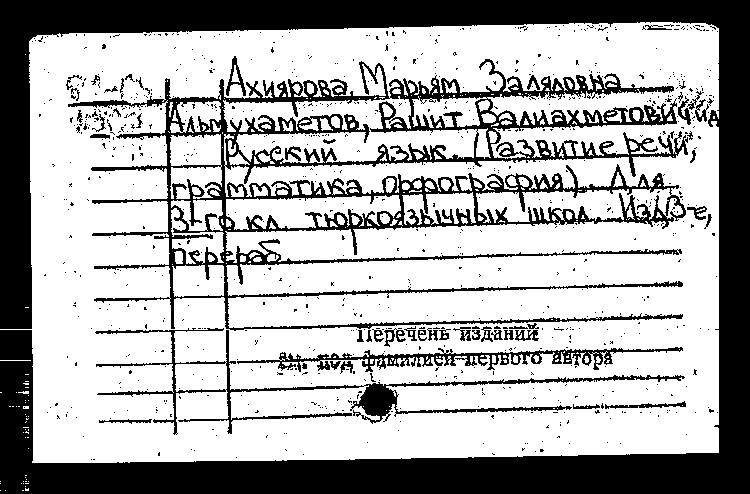 Ахиярова, Марьям Заляловна.
Альмухаметов, Рашит Валиахметович и др
Русский язык. (Развитие речи,
грамматика, орфография). Для
3-го кл. тюркоязычных школ. Изд. 3-е,
перераб.
Перечень изданий
см. под фамилией первого автора